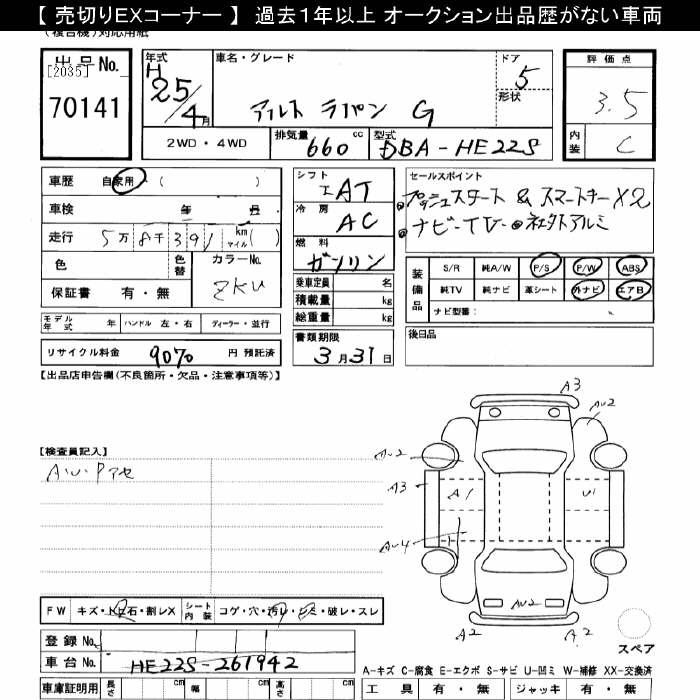 【 売切りEXコーナー 】 過去１年以上 オークション出品歴がない車両
(複合機)対応用紙
出品No.
[2035]
70141
年式
H 25/4月
車名・グレード
アルト ラパン G
ドア
5
形状
2WD・4WD
排気量 660 cc
型式 DBA-HE22S
評価点
3.5
内装 C
車歴 自家用・( )
車検 年 月
走行 5万8千391 km マイル( )
色 色替 カラーNo. ZKU
保証書 有・無
モデル年式 年 ハンドル 左・右 ディーラー・並行
リサイクル料金 9070 円 預託済
シフト AT
冷房 AC
燃料 ガソリン
乗車定員 名
積載量 kg
総重量 kg
書類期限
3月31日
セールスポイント
プッシュスタート & スマートキーX2
ナビ-TV- 社外アルミ
装備品
S/R 純A/W P/S P/W ABS
純TV 純ナビ 革シート 外ナビ エアB
ナビ型番:
後日品
【出品店申告欄(不良箇所・欠品・注意事項等)】
【検査員記入】
A・U・Pアセ
A3
AU2
AU2
A3
A1
U1
AU4
AU2
A2
A2
スペア
FW キズ・トビ石・割レX シート内装 コゲ・穴・汚レ・シミ・破レ・スレ
登録No.
車台No. HE22S-261942
車庫証明用 長さ cm 幅 cm 高さ cm
A-キズ C-腐食 E-エクボ S-サビ U-凹ミ W-補修 XX-交換済
工具 有・無 ジャッキ 有・無